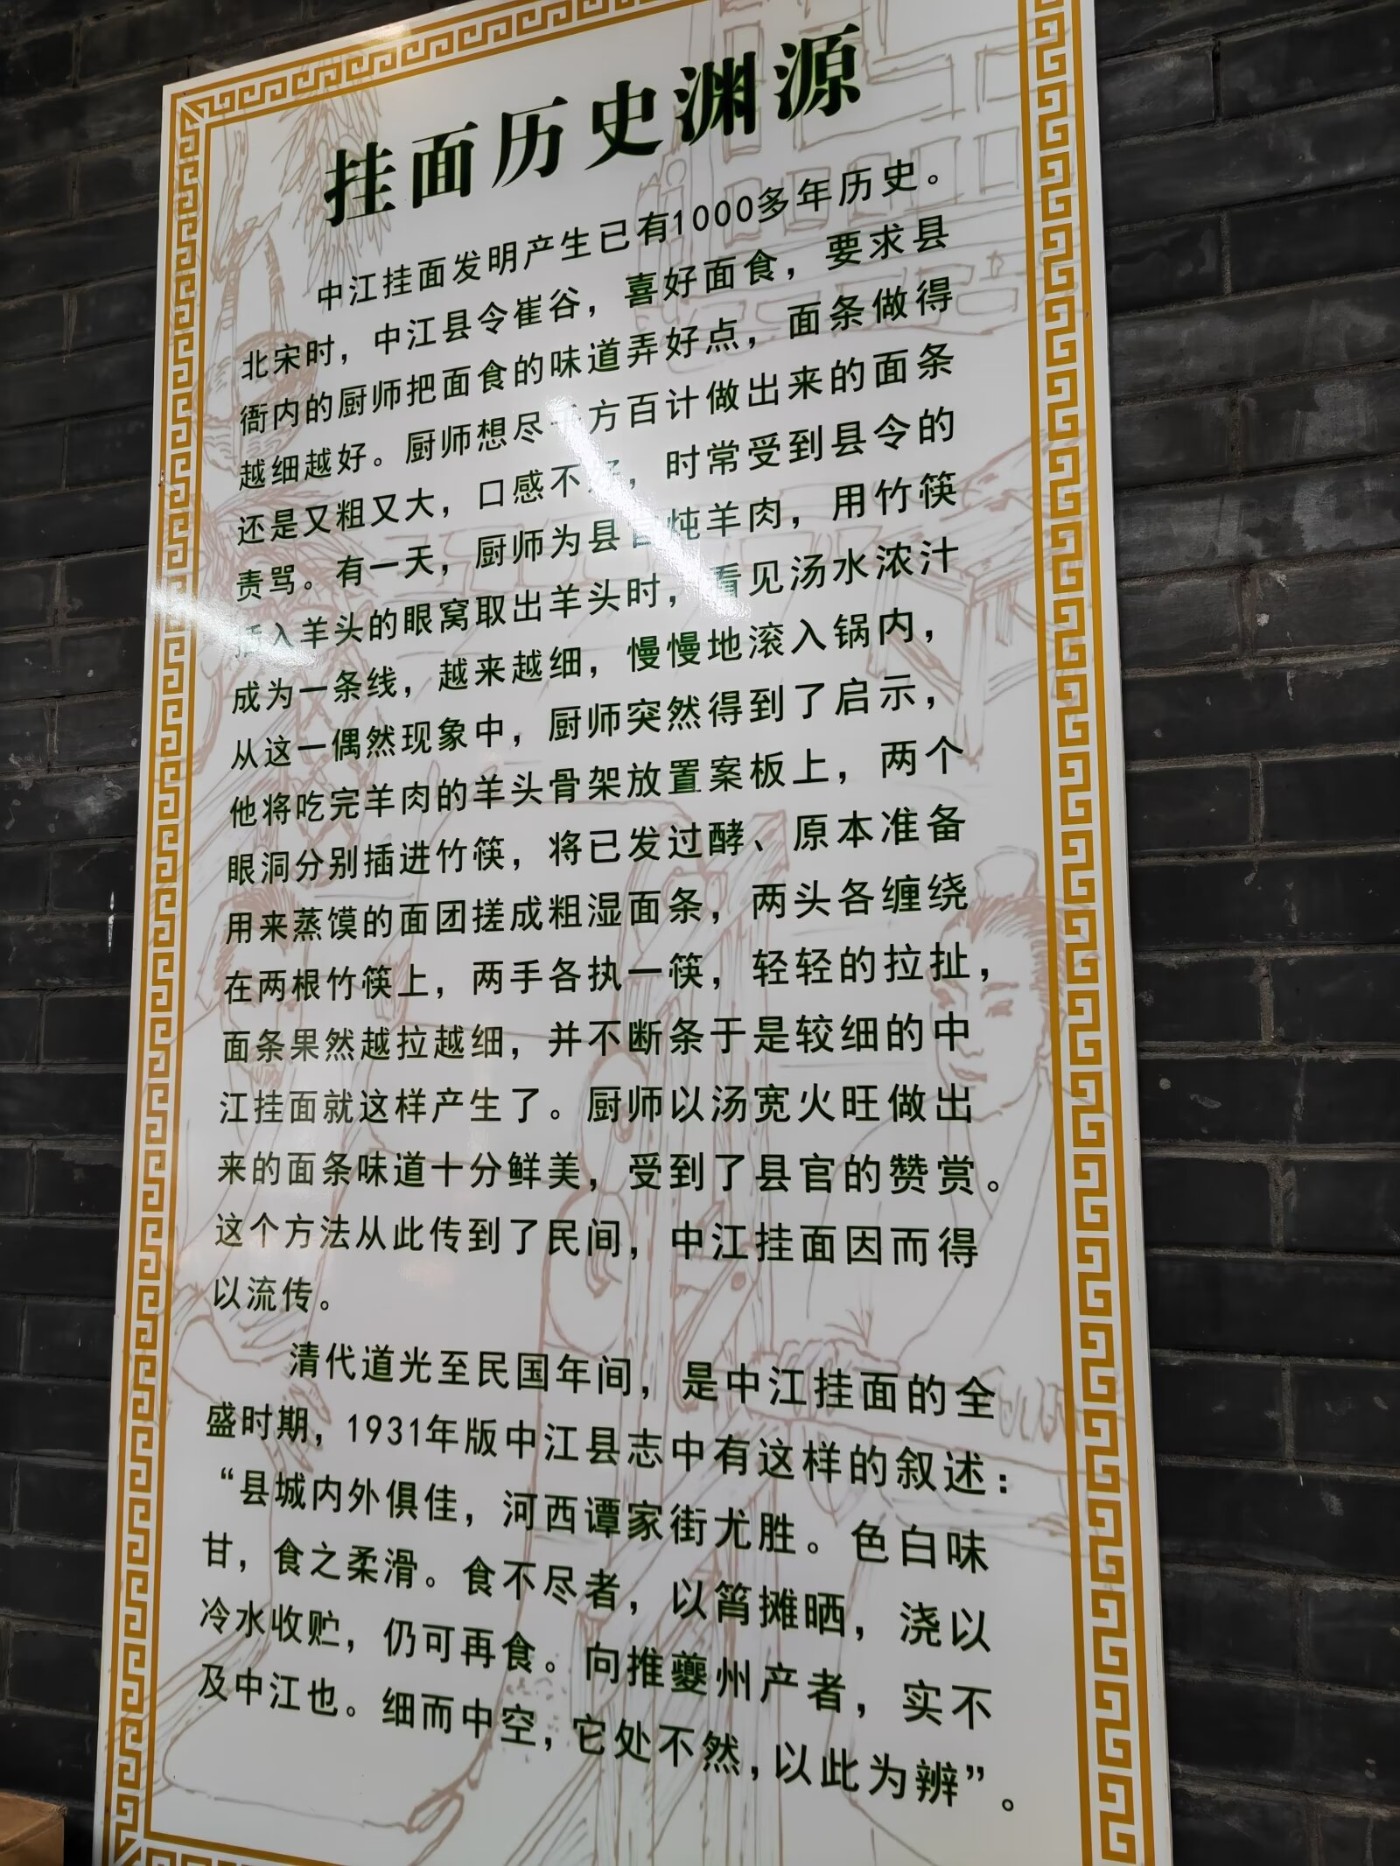 挂面历史渊源
中江挂面发明产生已有1000多年历史。
北宋时，中江县令崔谷，喜好面食，要求县
衙内的厨师把面食的味道弄好点，面条做得
越细越好。厨师想尽千方百计做出来的面条
还是又粗又大，口感不好，时常受到县令的
责骂。有一天，厨师为县官炖羊肉，用竹筷
插入羊头的眼窝取出羊头时，看见汤水浓汁
成为一条线，越来越细，慢慢地滚入锅内，
从这一偶然现象中，厨师突然得到了启示，
他将吃完羊肉的羊头骨架放置案板上，两个
眼洞分别插进竹筷，将已发过酵、原本准备
用来蒸馍的面团搓成粗湿面条，两头各缠绕
在两根竹筷上，两手各执一筷，轻轻的拉扯，
面条果然越拉越细，并不断条于是较细的中
江挂面就这样产生了。厨师以汤宽火旺做出
来的面条味道十分鲜美，受到了县官的赞赏。
这个方法从此传到了民间，中江挂面因而得
以流传。
清代道光至民国年间，是中江挂面的全
盛时期，1931年版中江县志中有这样的叙述：
“县城内外俱佳，河西谭家街尤胜。色白味
甘，食之柔滑。食不尽者，以筲摊晒，浇以
冷水收贮，仍可再食。向推夔州产者，实不
及中江也。细而中空，它处不然，以此为辨”。